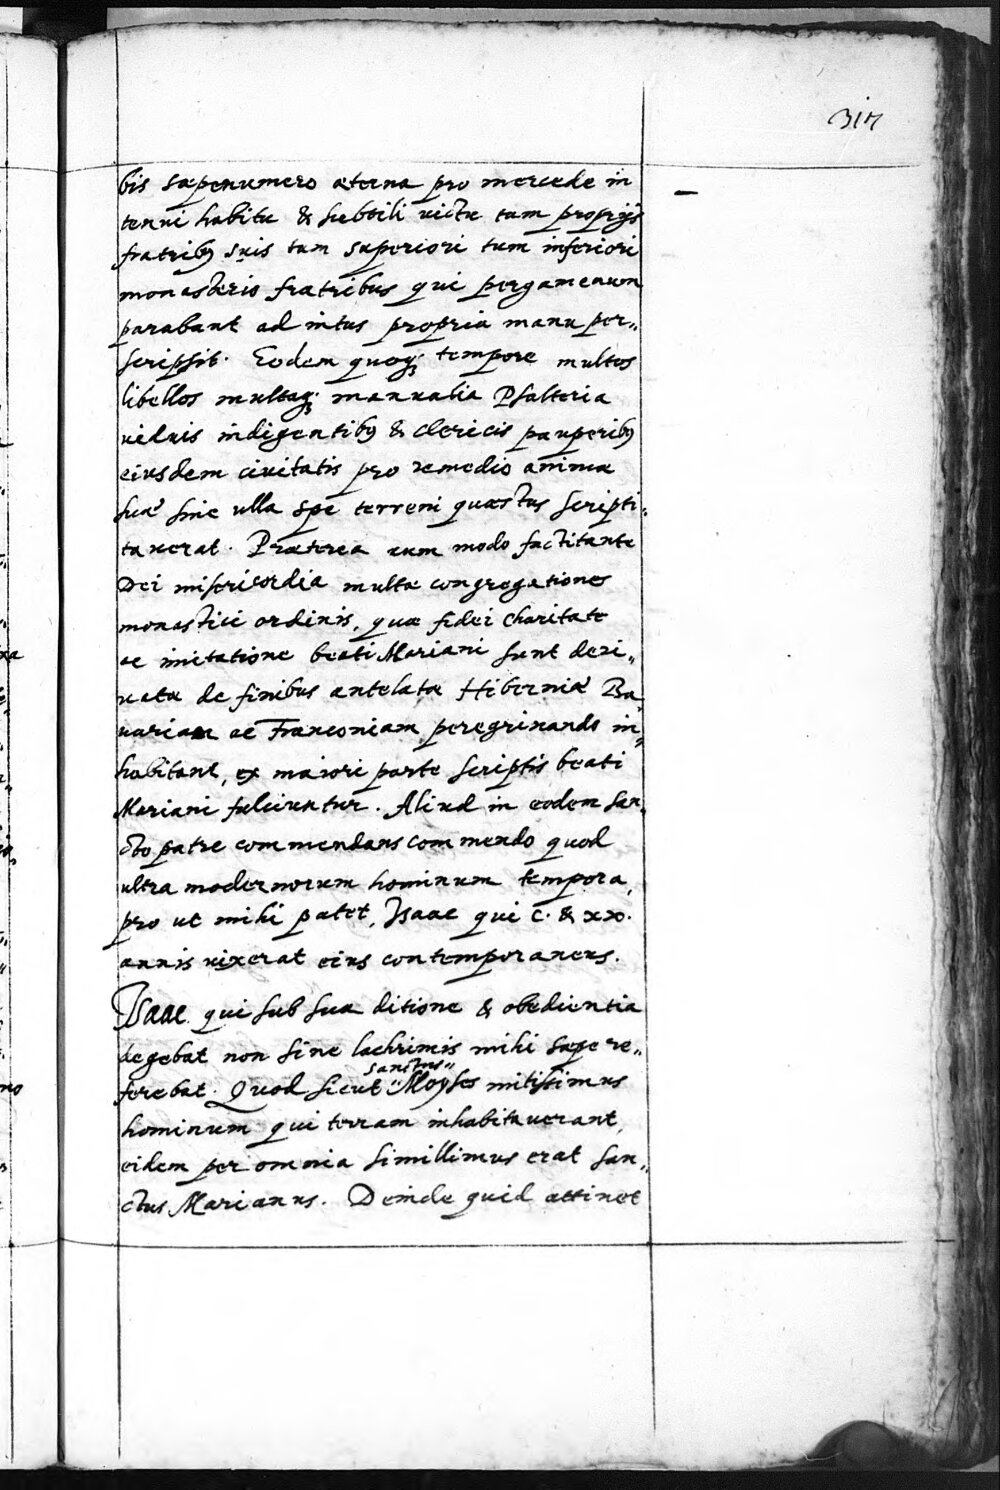 317
bis sæpenumero æterna pro mercede in
tenui habitu & subtili victu tam proprijs
fratribꝫ suis tam superiori tum inferiori
monasterio fratribus qui pergamenum
parabant ad intus propria manu per„
scripsit. Eodem quoqꝫ tempore multos
libellos multaqꝫ manualia Psalteria
uiduis indigentibꝫ & clericis pauperibꝫ
eiusdem ciuitatis pro remedio animæ
suæ sine ulla spe terreni quæstus scripti„
tauerat. Præterea eum modo factitante
Dei misericordia multæ congregationes
monastici ordinis, quæ fidei charitate
ac imitatione beati Mariani sunt deri„
uatæ de finibus antelatæ Hiberniæ Ba„
uariam ac Franconiam peregrinando in„
habitant, ex maiori parte scriptis beati
Mariani fulciuntur. Aliud in eodem san„
cto patre commendans commendo quod
ultra modernorum hominum tempora,
pro ut mihi patet, Isaac qui C. & xx.
annis uixerat eius contemporaneus.
Isaac qui sub sua ditione & obedientia
degebat non sine lachrimis mihi sæpe re„
sanctus„
ferebat. Quod sicut „Moyses mitissimus
hominum qui terram inhabitauerant,
eidem per omnia simillimus erat san„
ctus Marianus. Deinde quid attinet